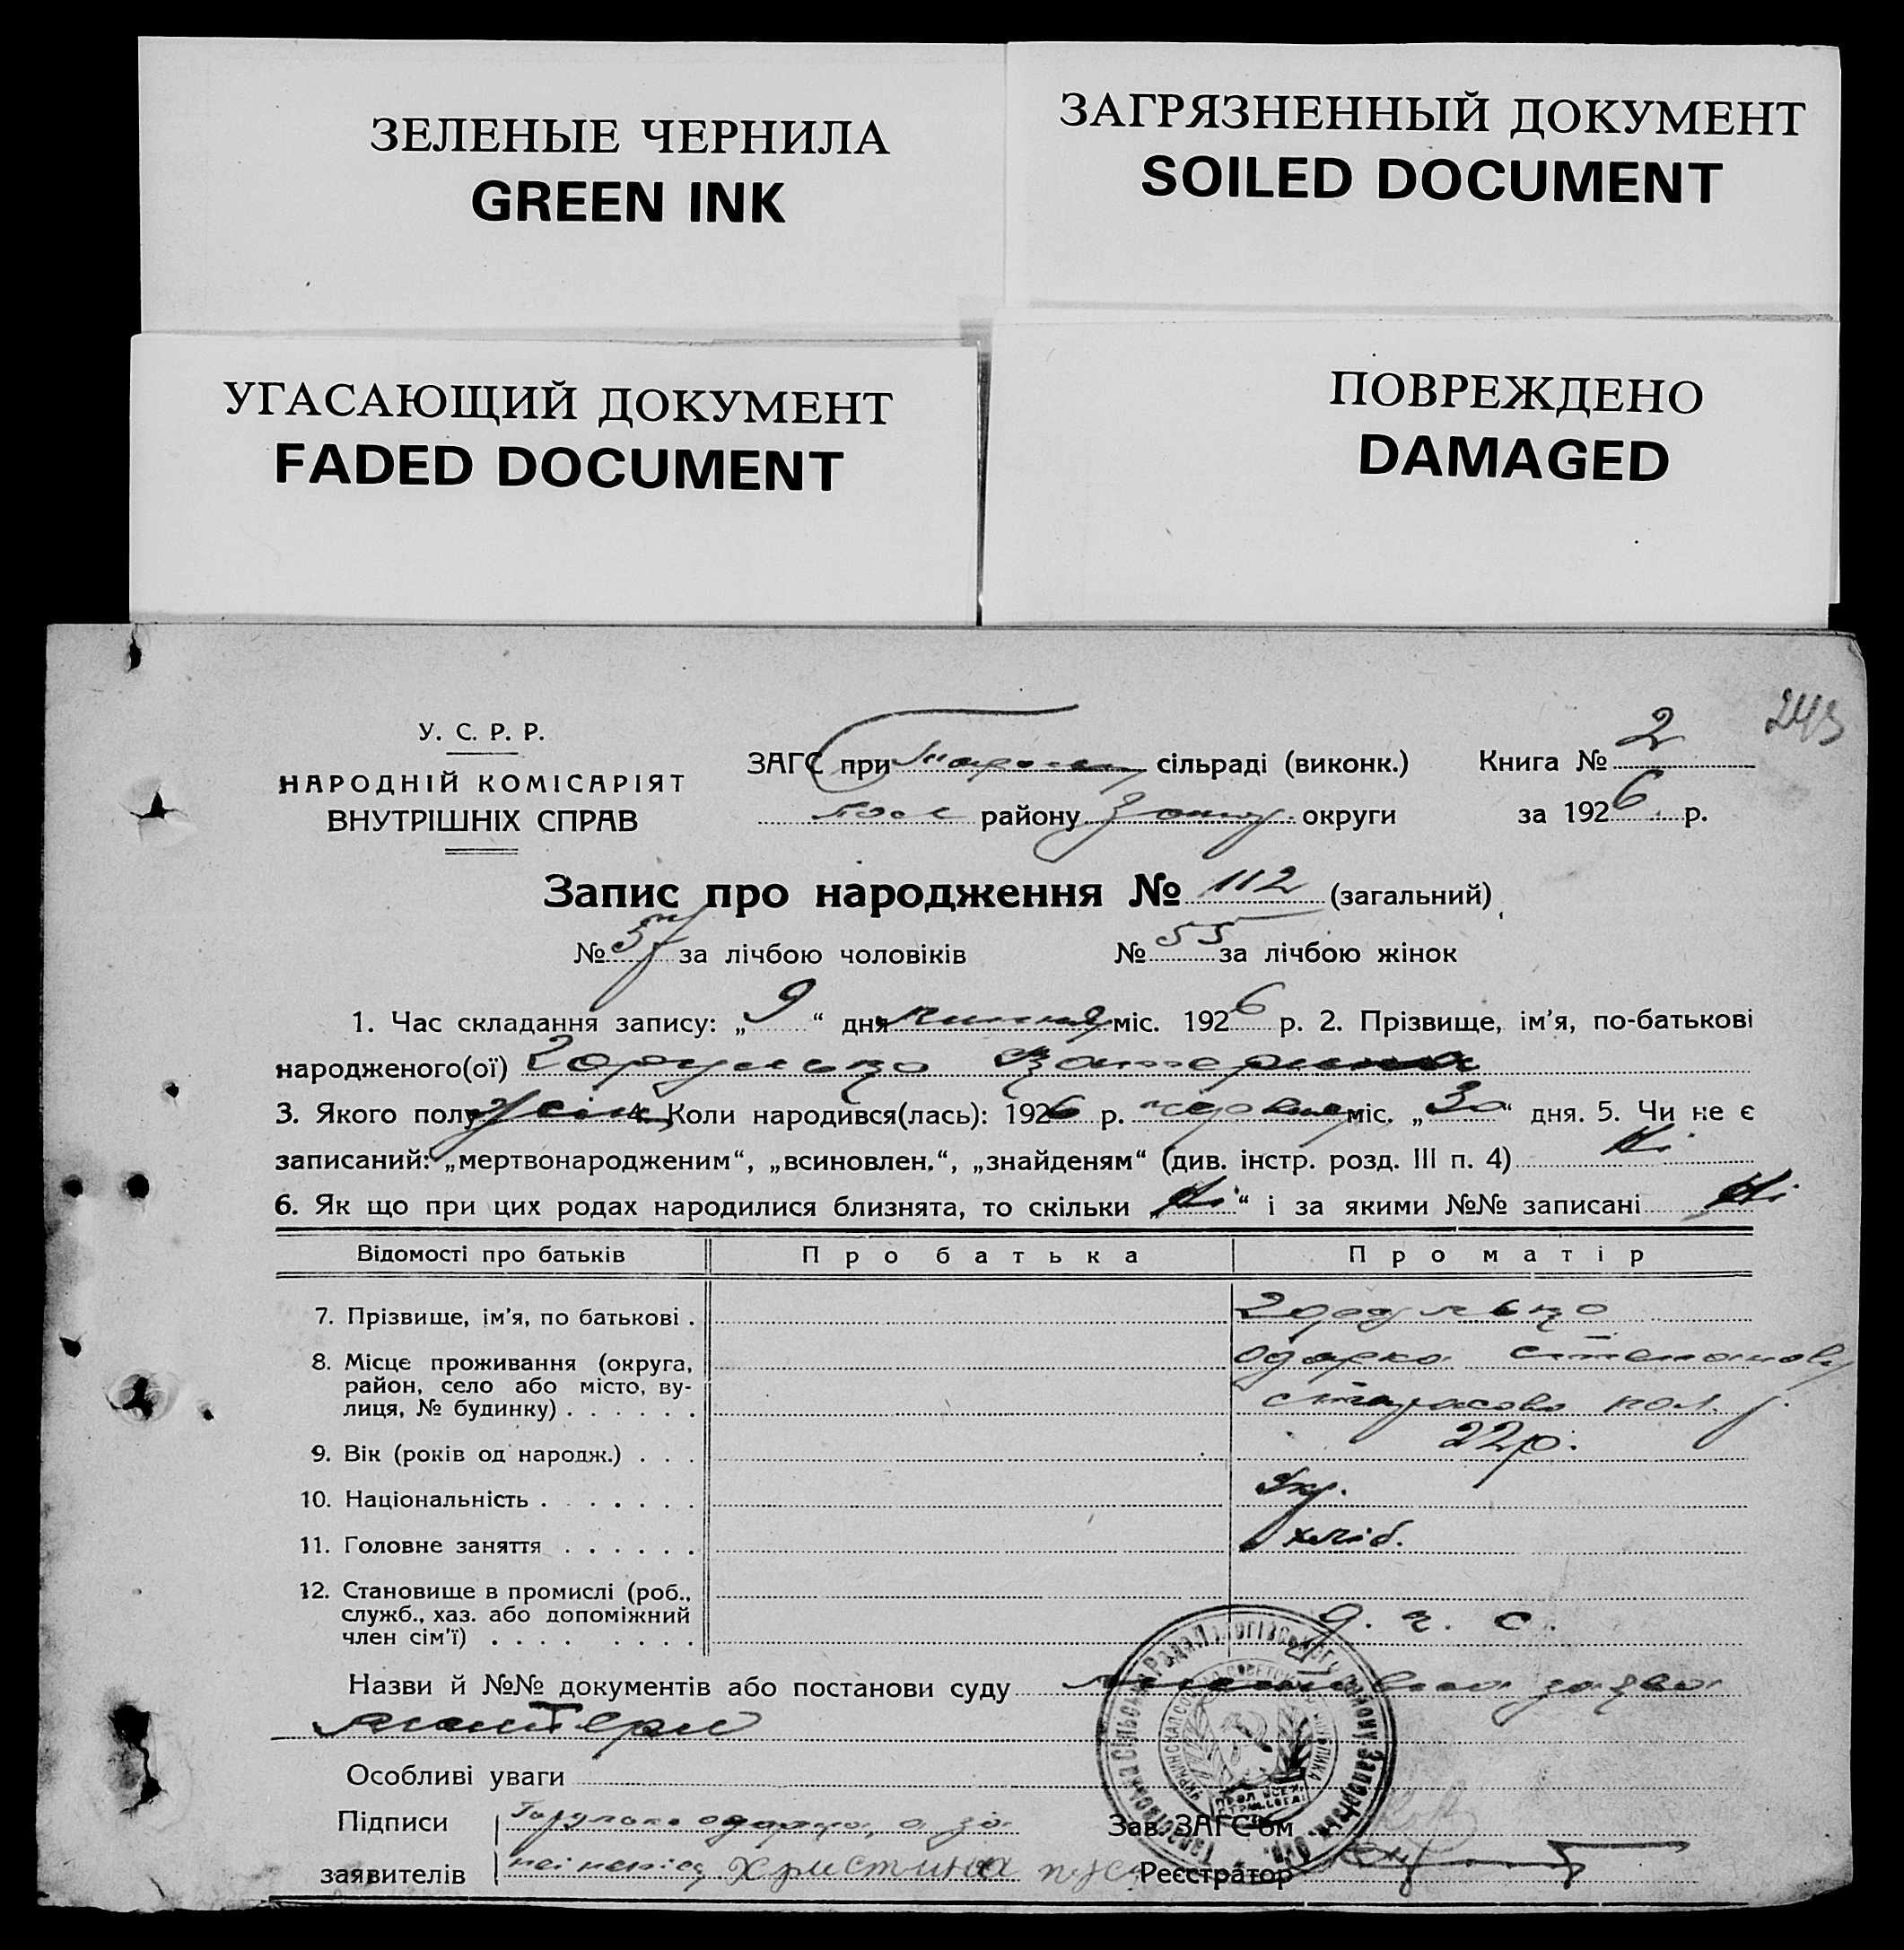 ЗЕЛЕНЫЕ ЧЕРНИЛА
GREEN INK
ЗАГРЯЗНЕННЫЙ ДОКУМЕНТ
SOILED DOCUMENT
УГАСАЮЩИЙ ДОКУМЕНТ
FADED DOCUMENT
ПОВРЕЖДЕНО
DAMAGED
243
У. С. Р. Р.
НАРОДНІЙ КОМІСАРІЯТ
ВНУТРІШНІХ СПРАВ
ЗАГС при сільраді (виконк.)
району округи
Книга № 2
за 1926 р.
Запис про народження № 112 (загальний)
№ 57 за лічбою чоловіків № 55 за лічбою жінок
1. Час складання запису: „9“ дня липня міс. 1926 р. 2. Прізвище, ім'я, по-батькові
народженого(ої) Горулько Катерина
3. Якого полу жін. 4. Коли народився(лась): 1926 р. червня міс. „30“ дня. 5. Чи не є
записаний: „мертвонародженим“, „всиновлен.“, „знайденям“ (див. інстр. розд. III п. 4) Ні
6. Як що при цих родах народилися близнята, то скільки „Ні“ і за якими №№ записані Ні
Відомості про батьків Про батька Про матір
7. Прізвище, ім'я, по батькові . Горулько
8. Місце проживання (округа, одарка степанов
район, село або місто, ву-
лиця, № будинку) . . . . . . тарасовка пол. р.
9. Вік (років од народж.) . . . 22р.
10. Національність . . . . . . . Укр.
11. Головне заняття . . . . . . хліб.
12. Становище в промислі (роб.,
служб., хаз. або допоміжний
член сім'ї) . . . . . . . . . д. ч. с.
Назви й №№ документів або постанови суду заява
матери
Особливі уваги
Підписи Горулько одарка, а за
заявителів неї Христина
Зав. ЗАГС'ом
Реєстратор